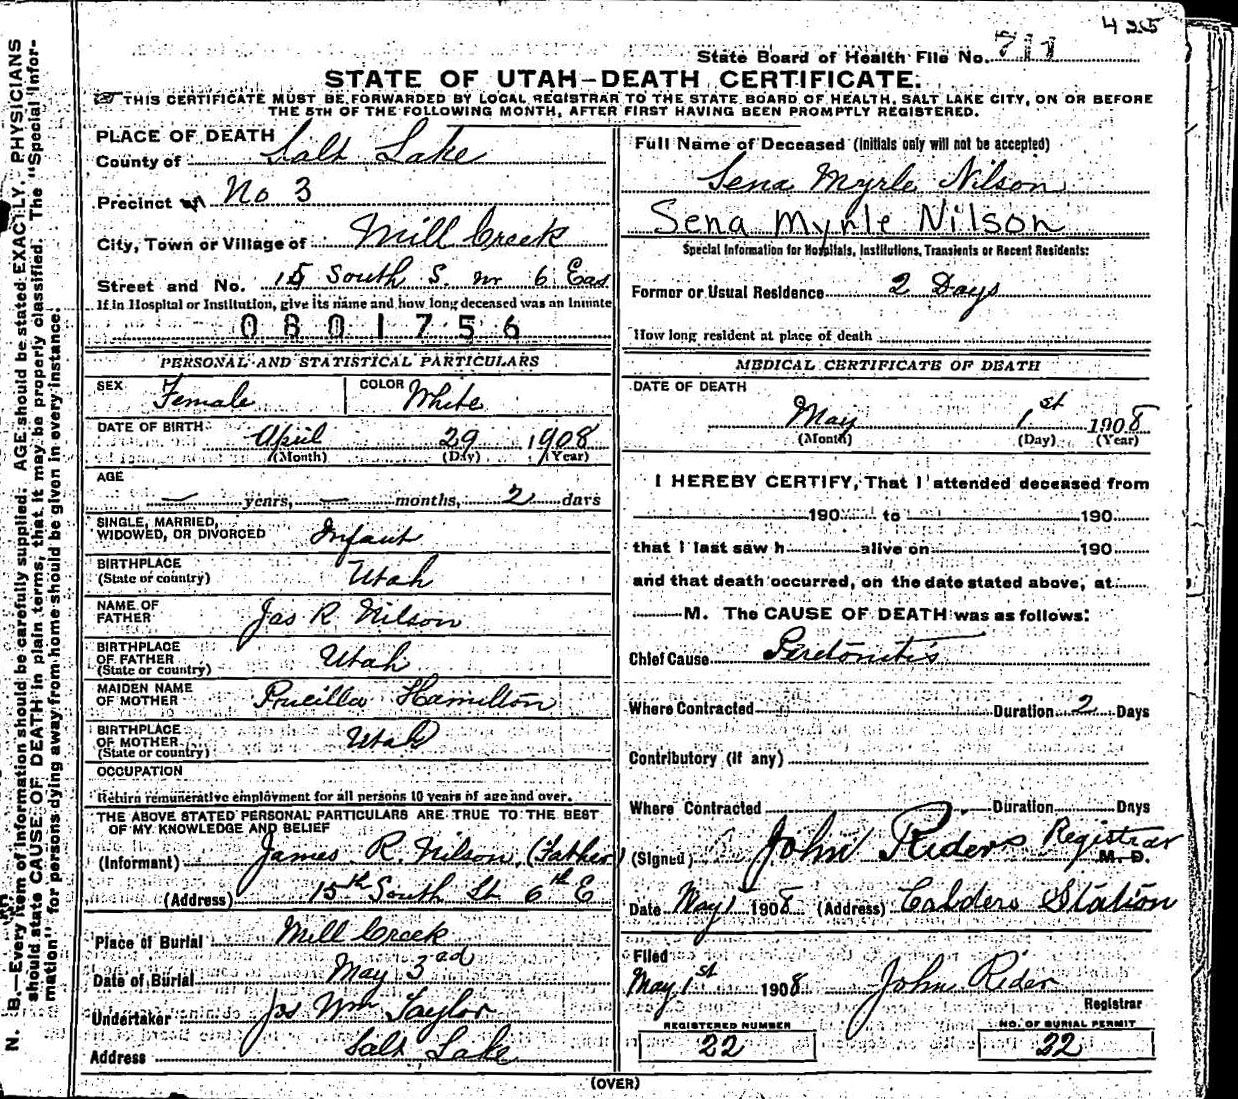 425
State Board of Health File No. 711
STATE OF UTAH—DEATH CERTIFICATE.
THIS CERTIFICATE MUST BE FORWARDED BY LOCAL REGISTRAR TO THE STATE BOARD OF HEALTH, SALT LAKE CITY, ON OR BEFORE
THE 5TH OF THE FOLLOWING MONTH, AFTER FIRST HAVING BEEN PROMPTLY REGISTERED.
PLACE OF DEATH
County of Salt Lake
Precinct No 3
City, Town or Village of Mill Creek
Street and No. 15 South S. nr 6 Eas
If in Hospital or Institution, give its name and how long deceased was an Inmate
0801756
PERSONAL AND STATISTICAL PARTICULARS
SEX Female COLOR White
DATE OF BIRTH April 29 1908
(Month) (Day) (Year)
AGE
— years, — months, 2 days
SINGLE, MARRIED,
WIDOWED, OR DIVORCED Infant
BIRTHPLACE
(State or country) Utah
NAME OF
FATHER Jas R Nilson
BIRTHPLACE
OF FATHER
(State or country) Utah
MAIDEN NAME
OF MOTHER Pricilla Hamilton
BIRTHPLACE
OF MOTHER
(State or country) Utah
OCCUPATION
Return remunerative employment for all persons 10 years of age and over.
THE ABOVE STATED PERSONAL PARTICULARS ARE TRUE TO THE BEST
OF MY KNOWLEDGE AND BELIEF
(Informant) James R. Nilson (Father)
(Address) 15th South St 6th E
Place of Burial Mill Creek
Date of Burial May 3ad
Undertaker Jos Wm Taylor
Address Salt Lake
Full Name of Deceased (Initials only will not be accepted)
Sena Myrle Nilson
Sena Myrle Nilson
Special Information for Hospitals, Institutions, Transients or Recent Residents:
Former or Usual Residence 2 Days
How long resident at place of death
MEDICAL CERTIFICATE OF DEATH
DATE OF DEATH
May 1st 1908
(Month) (Day) (Year)
I HEREBY CERTIFY, That I attended deceased from
190 to 190
that I last saw h alive on 190
and that death occurred, on the date stated above, at
M. The CAUSE OF DEATH was as follows:
Chief Cause Peretonitis
Where Contracted Duration 2 Days
Contributory (if any)
Where Contracted Duration Days
(Signed) John Riders Registrar M. D.
Date May 1 1908 (Address) Calders Station
Filed
May 1st 1908 John Rider
Registrar
REGISTERED NUMBER NO. OF BURIAL PERMIT
22 22
(OVER)
N. B.—Every item of information should be carefully supplied. AGE should be stated EXACTLY. PHYSICIANS
should state CAUSE OF DEATH in plain terms, that it may be properly classified. The "Special Infor-
mation" for persons dying away from home should be given in every instance.